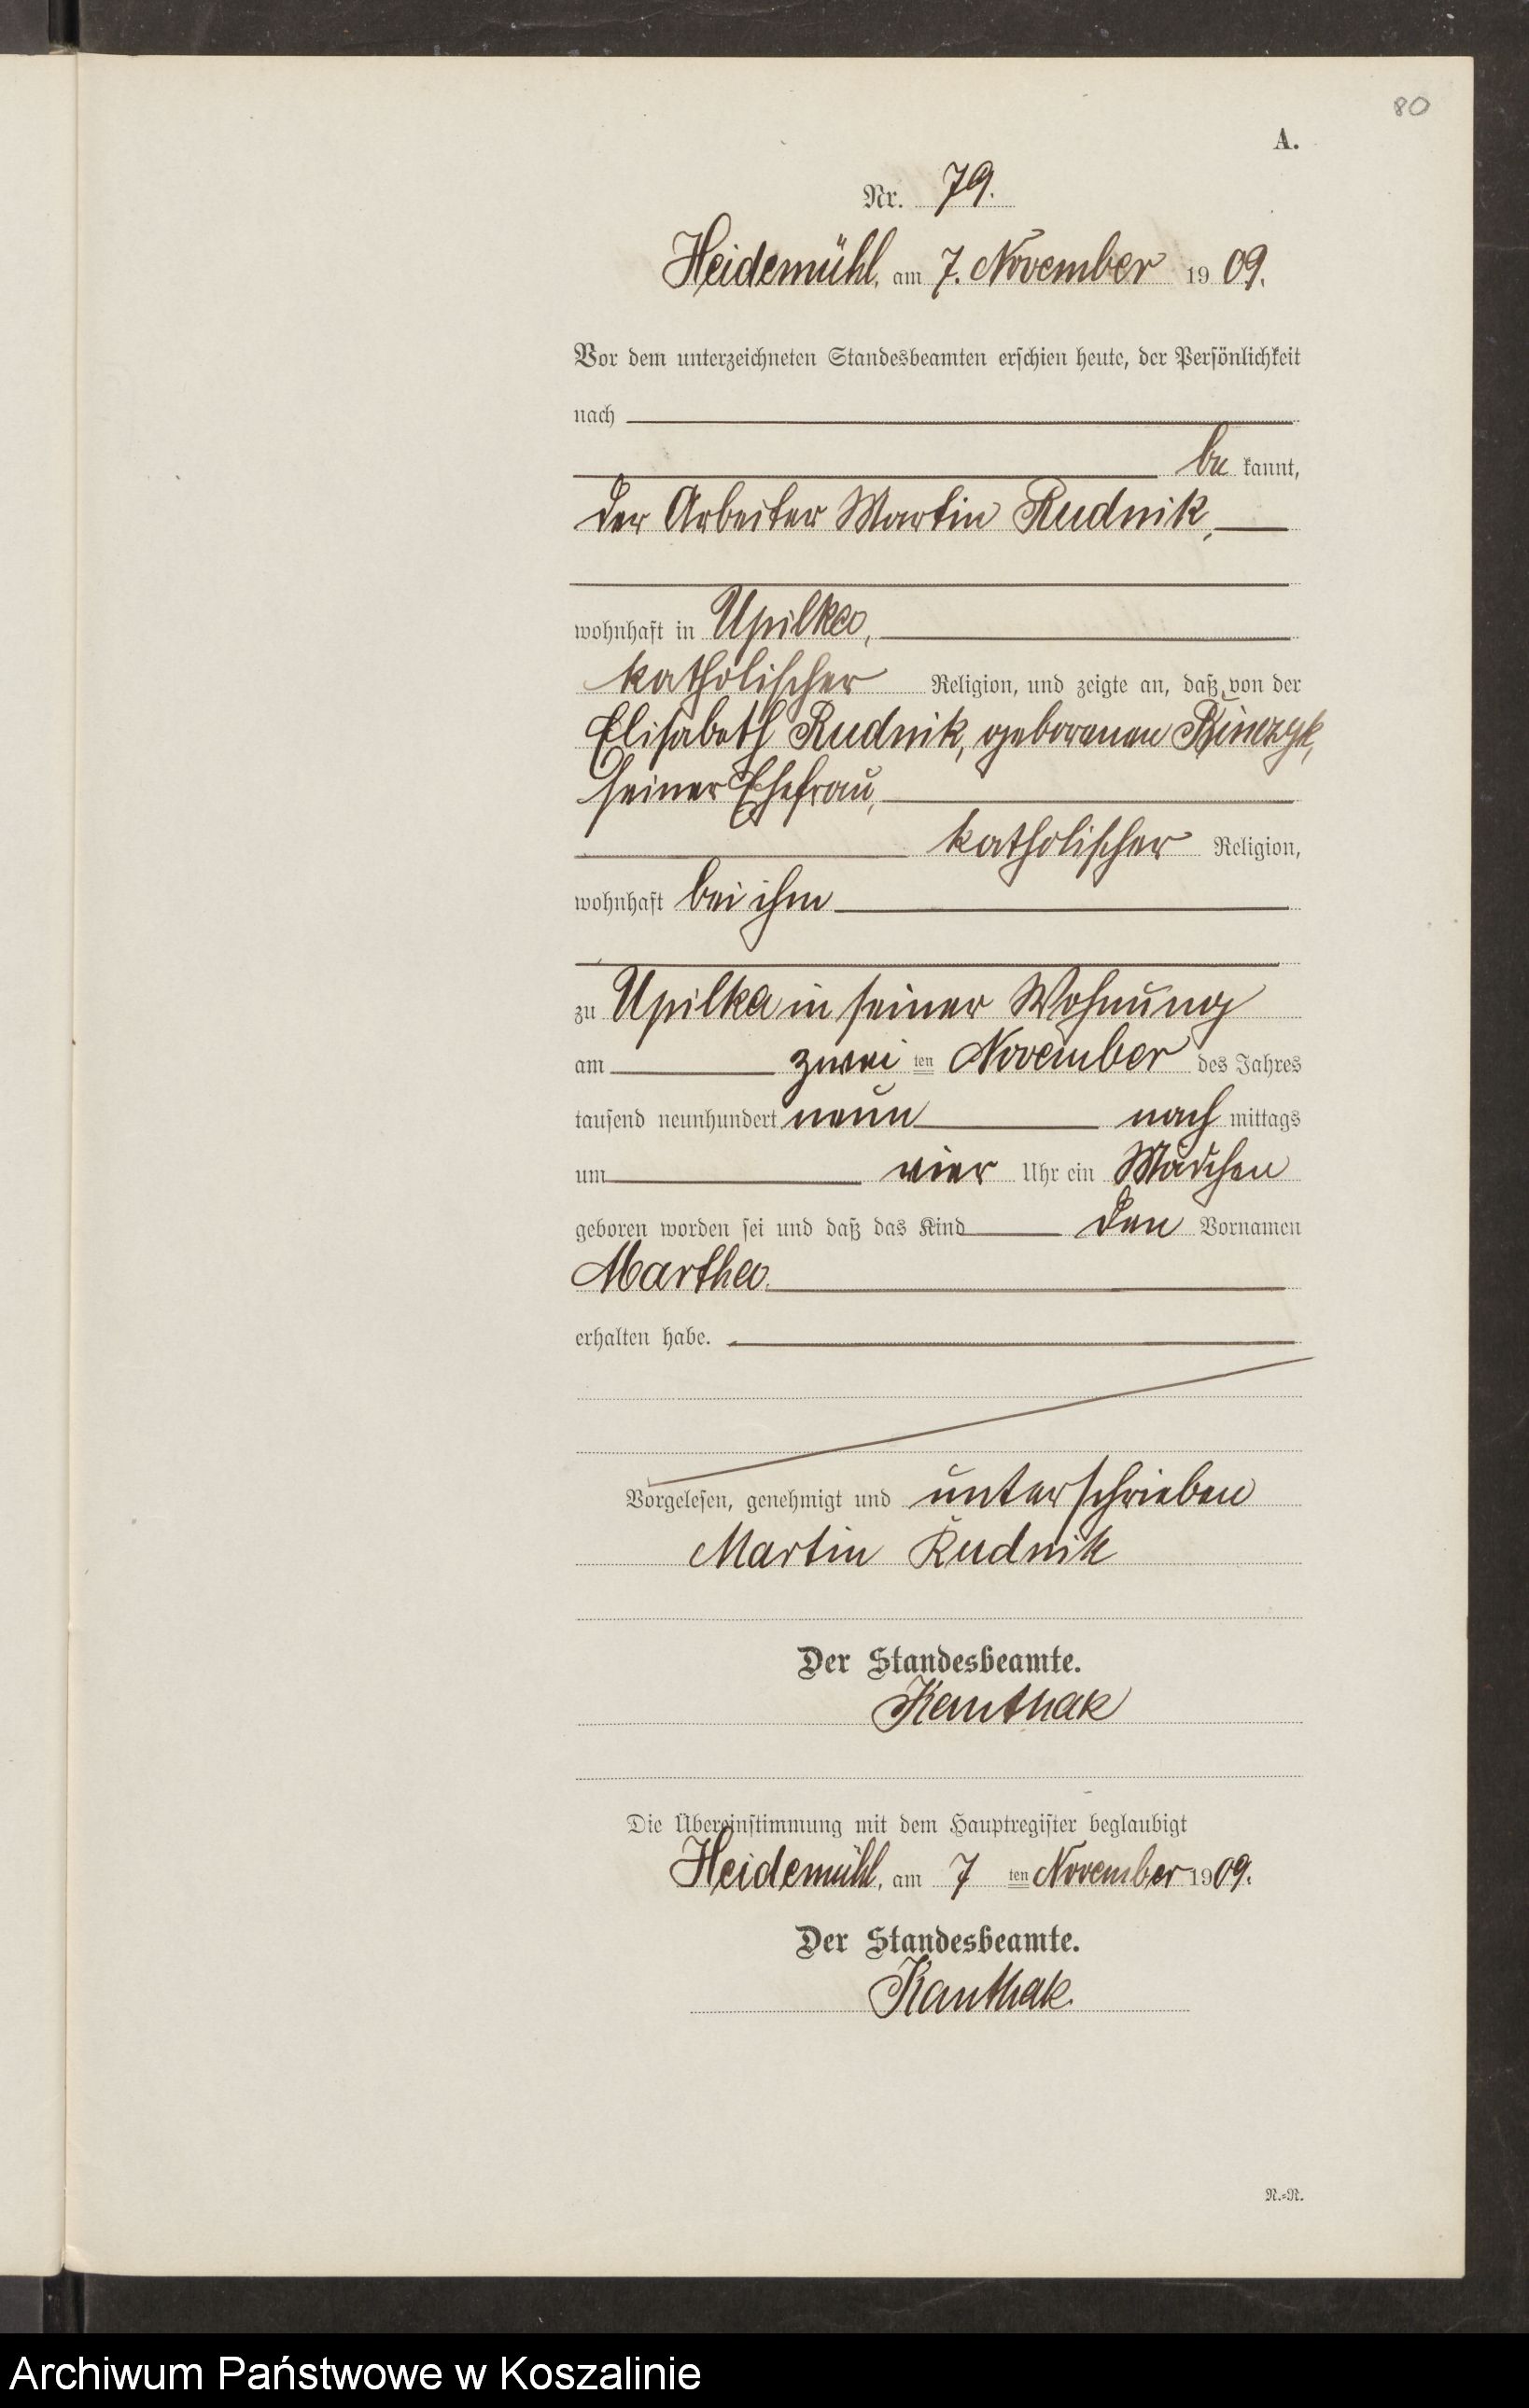 80
A.
Nr. 79.
Heidemühl, am 7. November 1909.
Vor dem unterzeichneten Standesbeamten erschien heute, der Persönlichkeit
nach
be kannt,
der Arbeiter Martin Rudnik,
wohnhaft in Upilka,
katholischer Religion, und zeigte an, daß von der
Elisabeth Rudnik, geborenen
seiner Ehefrau,
katholischer Religion,
wohnhaft bei ihm
zu Upilka in seiner Wohnung
am zwei ten November des Jahres
tausend neunhundert neun nach mittags
um vier Uhr ein Mädchen
geboren worden sei und daß das Kind den Vornamen
Martha
erhalten habe.
Vorgelesen, genehmigt und unterschrieben
Martin Rudnik
Der Standesbeamte.
Kanthak
Die Übereinstimmung mit dem Hauptregister beglaubigt
Heidemühl, am 7 ten November 1909.
Der Standesbeamte.
Kanthak.
N.=N.
Archiwum Państwowe w Koszalinie